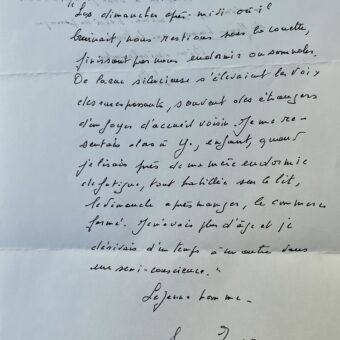 "Les dimanches après-midi où il
bruinait, nous restions sous la couette,
finissant par nous endormir ou somnoler.
De la rue silencieuse s'élevaient les voix
des rares passants, souvent des étrangers
d'un foyer d'accueil voisin. Je me re-
sentais alors à Y., enfant, quand
je lisais près de ma mère endormie
de fatigue, tout habillée, sur le lit,
le dimanche après manger, le commerce
fermé. Je n'avais plus d'âge et je
dérivais d'un temps à un autre dans
une semi-conscience."
Le jeune homme -